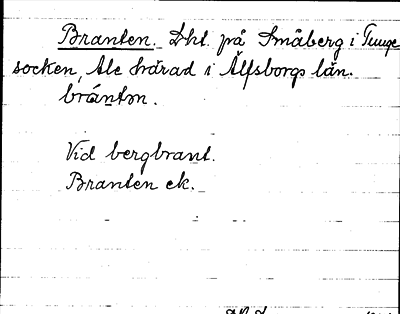 Branten. Dht. på Småberg i Tunge
socken, Ale härad i Älfsborgs län.
brántən.
Vid bergbrant.
Branten ek.